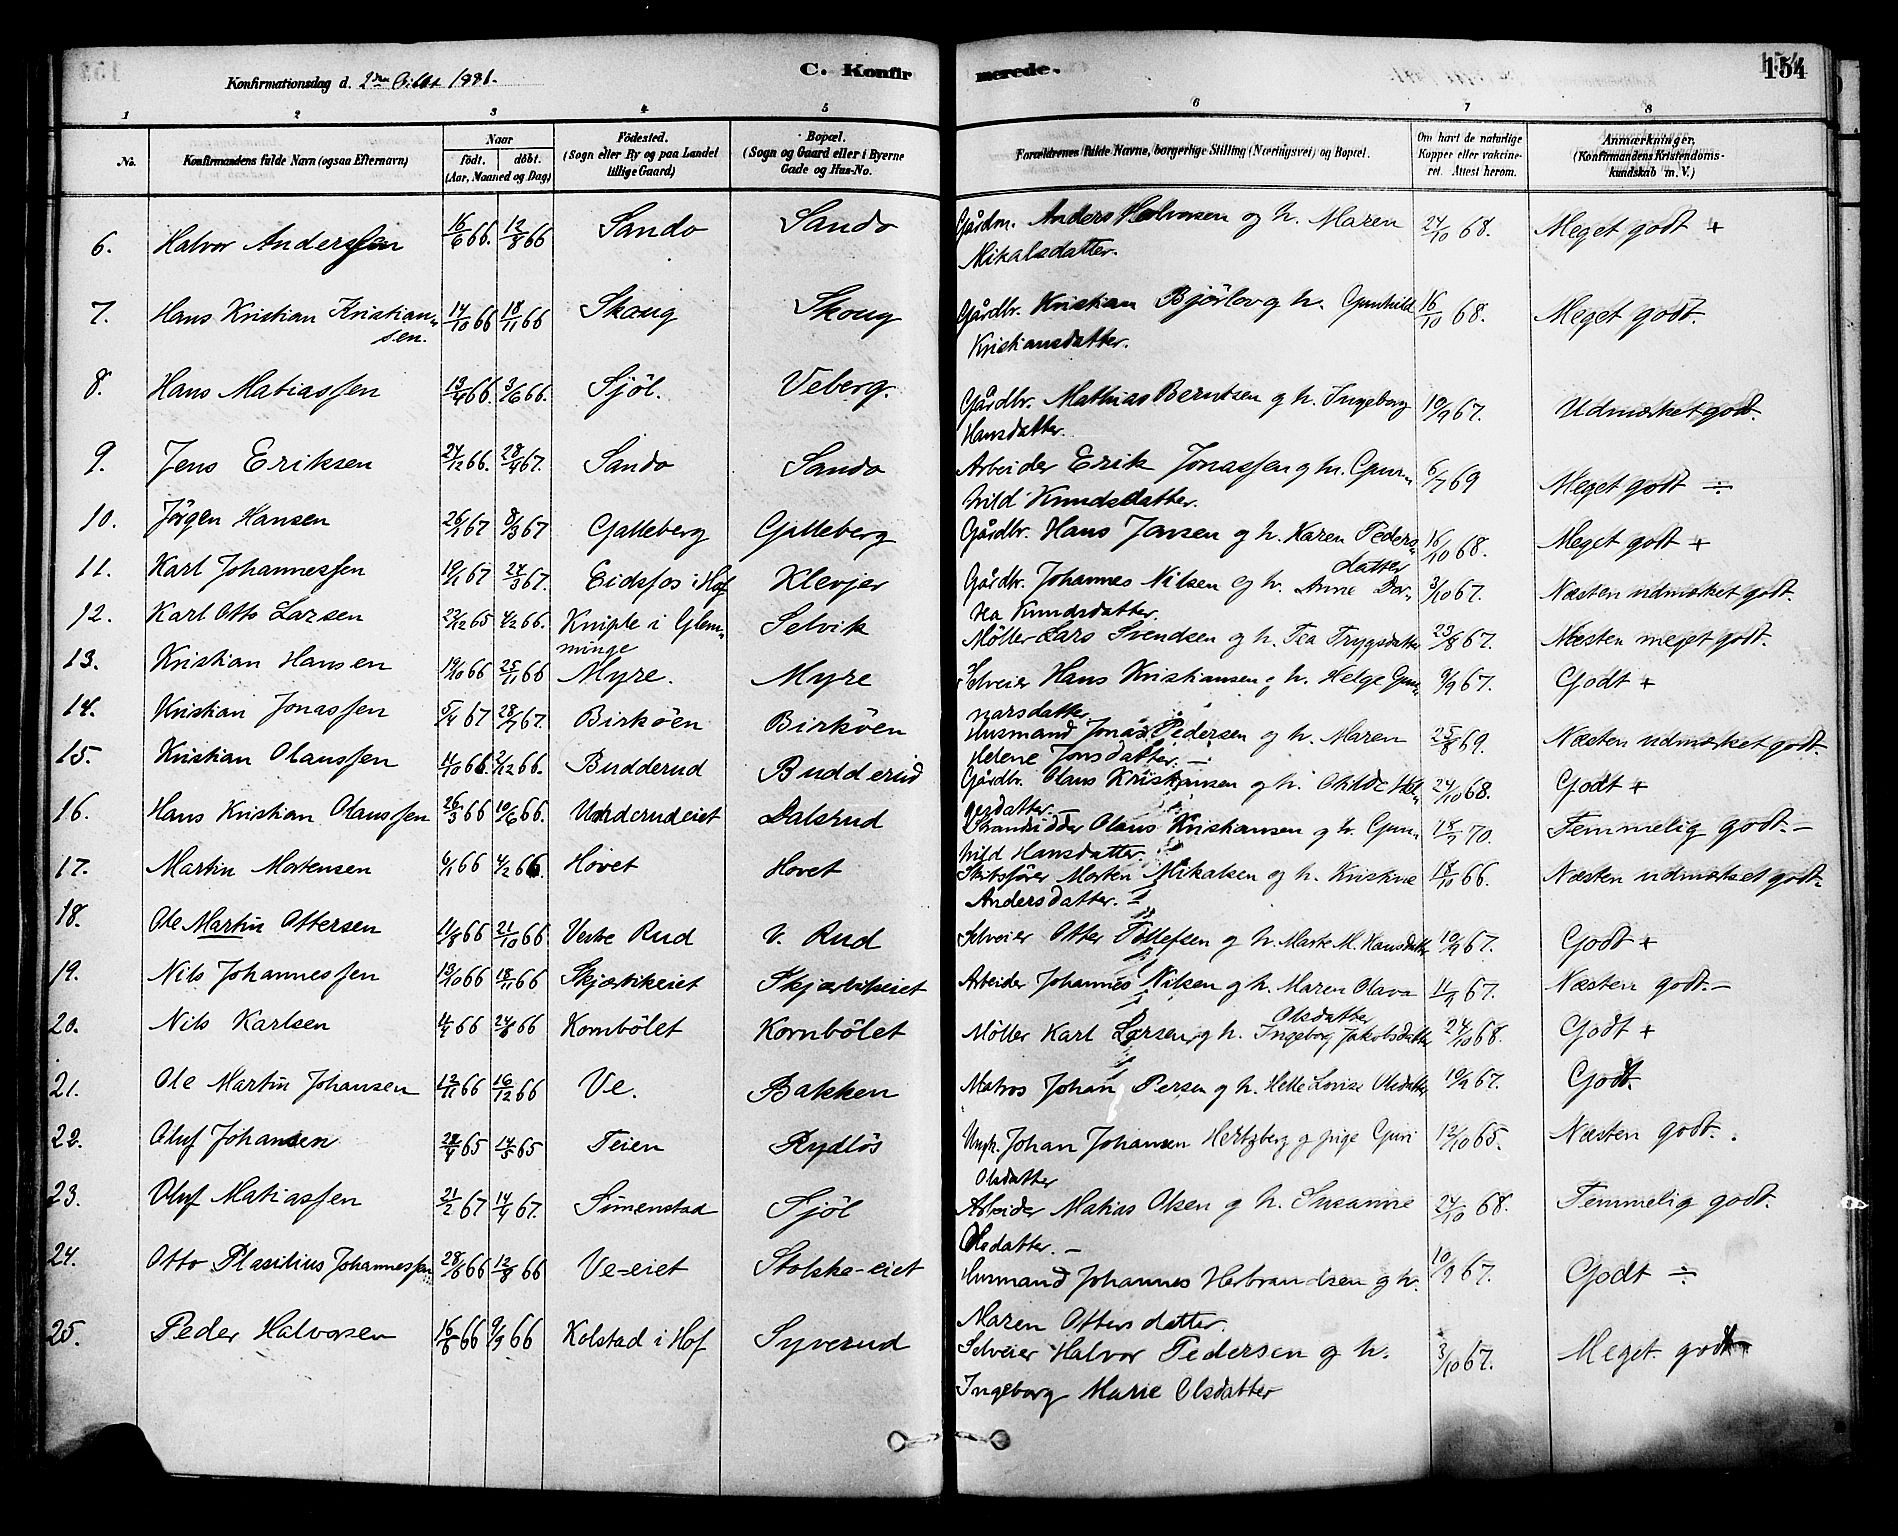 154
Konfirmationsdag d. 2den Oktbr 1881.
C. Konfirmerede.
1 2 3 4 5 6 7 8
No.
Konfirmandens fulde Navn (ogsaa Efternavn)
Naar
født. døbt.
(Aar, Maaned og Dag)
Fødested.
(Sogn eller By og paa Landet
tillige Gaard)
Bopæl.
(Sogn og Gaard eller i Byerne
Gade og Hus-No.
Forældrenes fulde Navne, borgerlige Stilling (Næringsvei) og Bopæl.
Om havt de naturlige
Kopper eller vaktine-
ret. Attest herom.
Anmærkninger,
(Konfirmandens Kristendoms-
kundskab m. V.)
6. Halvor Anderssen 16/6 66. 12/8 66 Sando Sando Gårdm. Anders Halvorsen og h. Maren 24/10 68. Meget godt +
Mikalsdatter.
7. Hans Kristian Kristian- 14/10 66 18/11 66 Skoug Skoug Gårdbr. Kristian Bjørlov g h. Gunhild 16/10 68. Meget godt.
sen. Kristiansdatter.
8. Hans Matiassen 13/4 66. 3/6 66. Sjöl. Veberg. Gårdbr. Mathias Berntsen g h. Ingeborg 10/9 67. Udmærket godt.
Hansdatter.
9. Jens Eriksen 27/12 66. 28/4 67. Sando Sando Arbeider Erik Jonassen g h. Gun- 6/7 69 Meget godt ÷
hild Knudsdatter.
10. Jørgen Hansen 26/1 67 8/3 67 Galleberg Galleberg Gårdbr. Hans Jansen g h. Karen Peders- 16/10 68. Meget godt +
datter
11. Karl Johannessen 19/1 67 24/3 67. Eidsfos i Hof Klevjer Gårdbr. Johannes Nilsen g h. Anne Dor- 3/10 67. Næsten udmærket godt.
thea Knudsdatter.
12. Karl Otto Larsen 23/12 65 4/2 66. Kniple i Glem- Selvik Møller Lars Svendsen g h. Tea Trygsdatter 23/8 67. Næsten meget godt.
minge
13. Kristian Hansen 19/10 66 25/11 66 Myre. Myre Selveier Hans Kristiansen g h. Helge Gun- 9/9 67. Godt +
narsdatter.
14. Kristian Jonassen 5/4 67 28/7 67. Birköen Birköen Husmand Jonas Pedersen g h. Maren 25/8 69. Næsten udmærket godt.
Helene Jonsdatter. -
15. Kristian Olaussen 11/10 66. 2/12 66. Budderud Budderud Gårdbr. Olaus Kristiansen g h. 24/10 68. Godt +
datter -
16. Hans Kristian Olaussen 26/3 66 10/6 66. Unnerudeiet Dalsrud Strandsidder Olaus Kristiansen g h. Gun- 18/9 70. Temmelig godt. -
hild Hansdatter.
17. Martin Mortensen 6/1 66 4/2 66. Hovet Hovet Skibsfører Morten Mikalsen g h. Kristine 18/10 66. Næsten udmærket godt.
Andersdatter. -
18. Ole Martin Ottersen 11/8 66 21/10 66. Vestre Rud V. Rud Selveier Otter Tollefsen g h. Marte M. Hansdatter 10/9 67. Godt +
19. Nils Johannessen 13/10 66 18/11 66 Skjærvikeiet Skjærvikeiet Arbeider Johannes Nilsen g h. Maren Olava 11/9 67. Næsten godt. -
Olsdatter
20. Nils Karlsen 4/4 66 24/6 66 Kornbölet Kornbölet Møller Karl Larsen, g h. Ingeborg Jakobsdatter 24/10 68. Godt +
21. Ole Martin Johansen 12/11 66 16/12 66 Ve. Bakken Matros Johan Persen g h. Helle Lovise Olsdatter 10/9 67. Godt.
22. Oluf Johansen 28/4 65 14/5 65 Teien Rydløs Ungk. Johan Johansen Hertzberg g pige Guri 12/10 65. Næsten godt.
Olsdatter
23. Oluf Matiassen 21/2 67 14/4 67. Simenstad Sjöl Arbeider Matias Olsen g h. Susanne 24/10 68. Temmelig godt.
Olsdatter. -
24. Otto Johannessen 28/6 66 12/8 66 Ve-eiet Stolske-eiet Husmand Johannes Herbrandsen g h. 10/9 67. Godt ÷
Maren Ottersdatter.
25. Peder Halvorsen 16/6 66 9/9 66 Kolstad i Hof Syverud Selveier Halvor Pedersen g h. 3/10 67. Meget godt
Ingeborg Marie Olsdatter